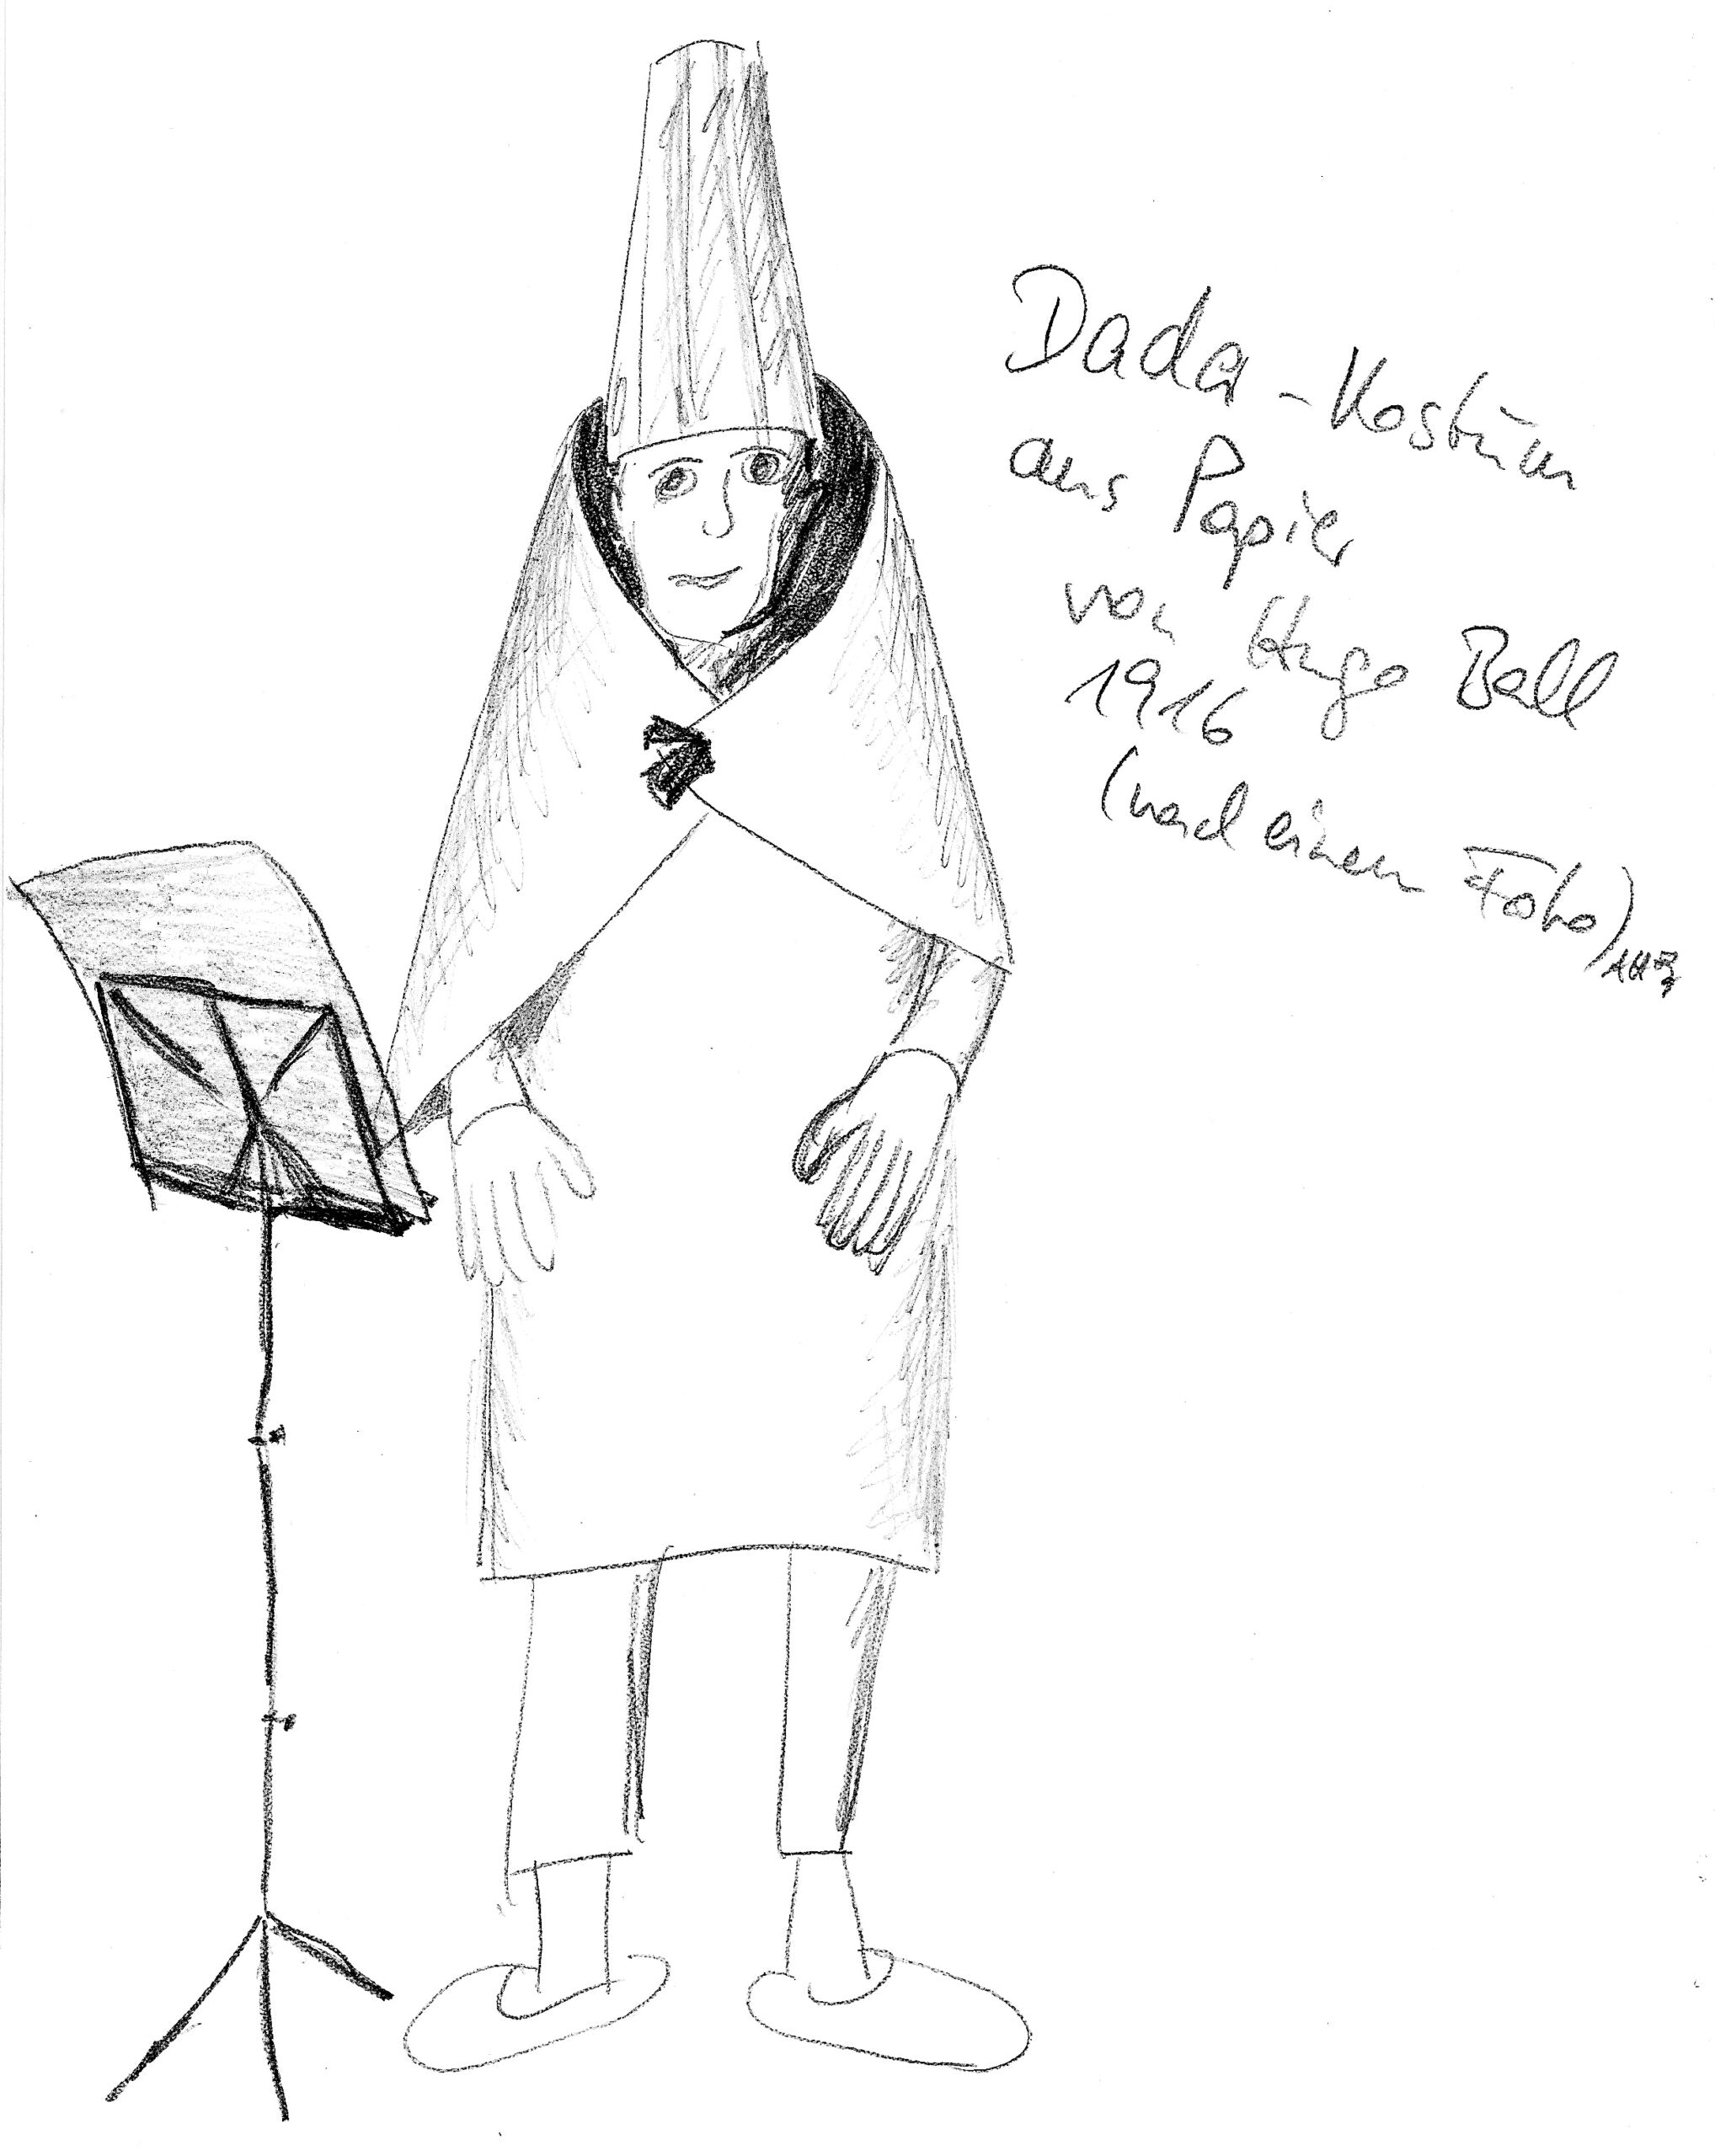 Dada-Kostüm
aus Papier
von Hugo Ball
1916
(nach einem Foto)